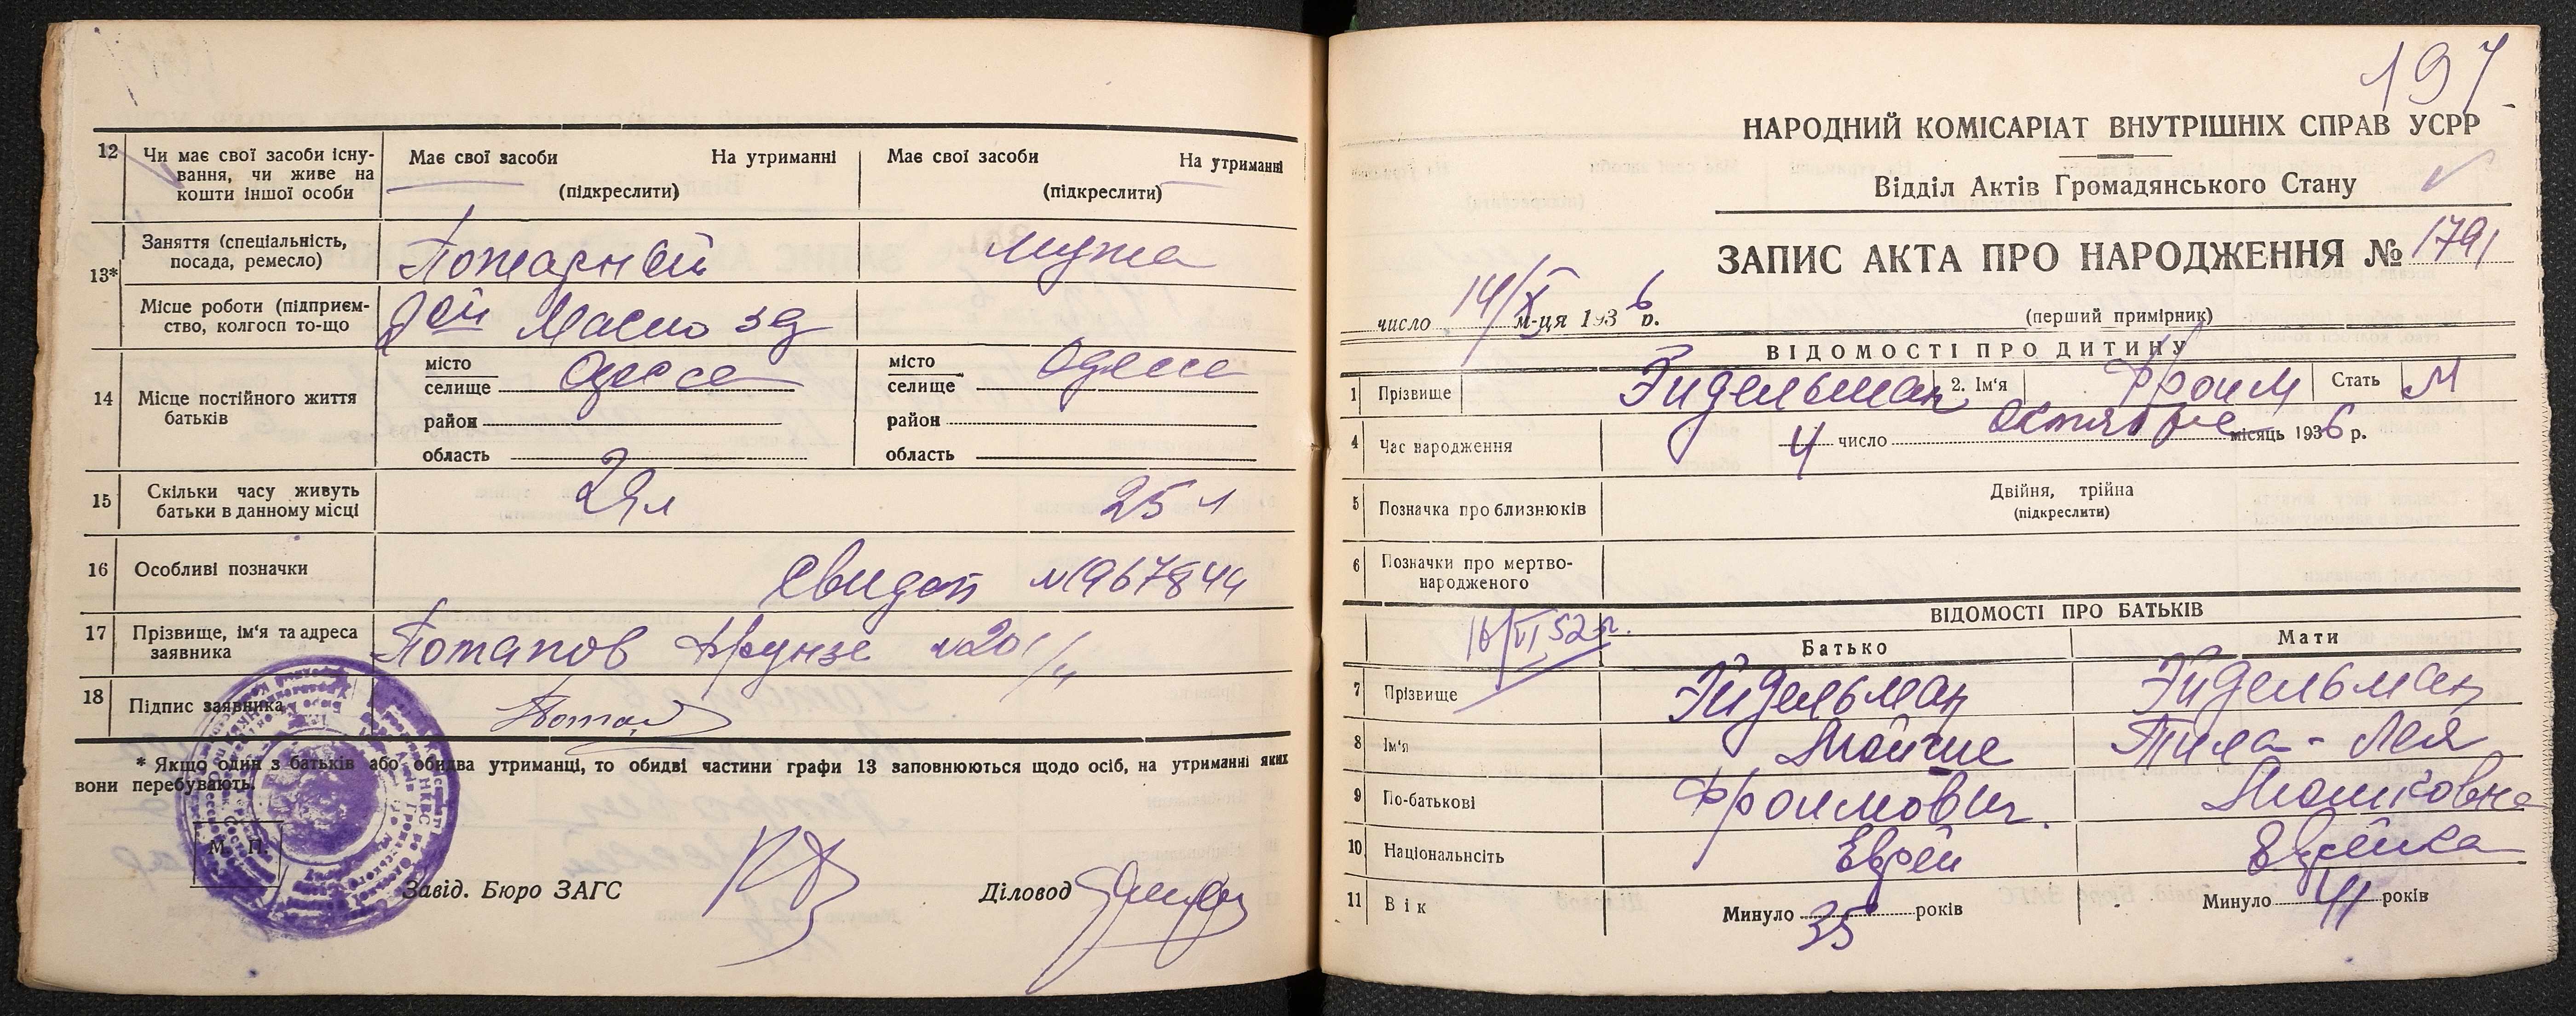 12 Чи має свої засоби існу-
вання, чи живе на
кошти іншої особи
Має свої засоби На утриманні
(підкреслити)
Має свої засоби На утриманні
(підкреслити)
13* Заняття (спеціальність,
посада, ремесло)
Пожарный
мужа
Місце роботи (підприєм-
ство, колгосп то-що
Масло зд
14 Місце постійного життя
батьків
місто
селище Одесса
район
область
місто
селище Одесса
район
область
15 Скільки часу живуть
батьки в данному місці
25 л
16 Особливі позначки
Свидет №1967844
17 Прізвище, ім'я та адреса
заявника
Потапов Фрунзе №201/4
18 Підпис заявника
* Якщо один з батьків або обидва утриманці, то обидві частини графи 13 заповнюються щодо осіб, на утриманні яких
вони перебувають.
М. П.
Завід. Бюро ЗАГС
Діловод
197
НАРОДНИЙ КОМІСАРІАТ ВНУТРІШНІХ СПРАВ УСРР
Відділ Актів Громадянського Стану
ЗАПИС АКТА ПРО НАРОДЖЕННЯ № 1791
число 14/X м-ця 1936 р.
(перший примірник)
ВІДОМОСТІ ПРО ДИТИНУ
1 Прізвище Эйдельман 2. Ім'я Фроим Стать М
4 Час народження 4 число октября місяць 1936 р.
5 Позначка про близнюків
Двійня, трійна
(підкреслити)
6 Позначки про мертво-
народженого
ВІДОМОСТІ ПРО БАТЬКІВ
16/VI 52 г.
Батько Мати
7 Прізвище Эйдельман Эйдельман
8 Ім'я Мойше Тила-Лея
9 По-батькові Фроимович Мошковна
10 Національнсіть Еврей Еврейка
11 Вік Минуло 35 років Минуло 41 років